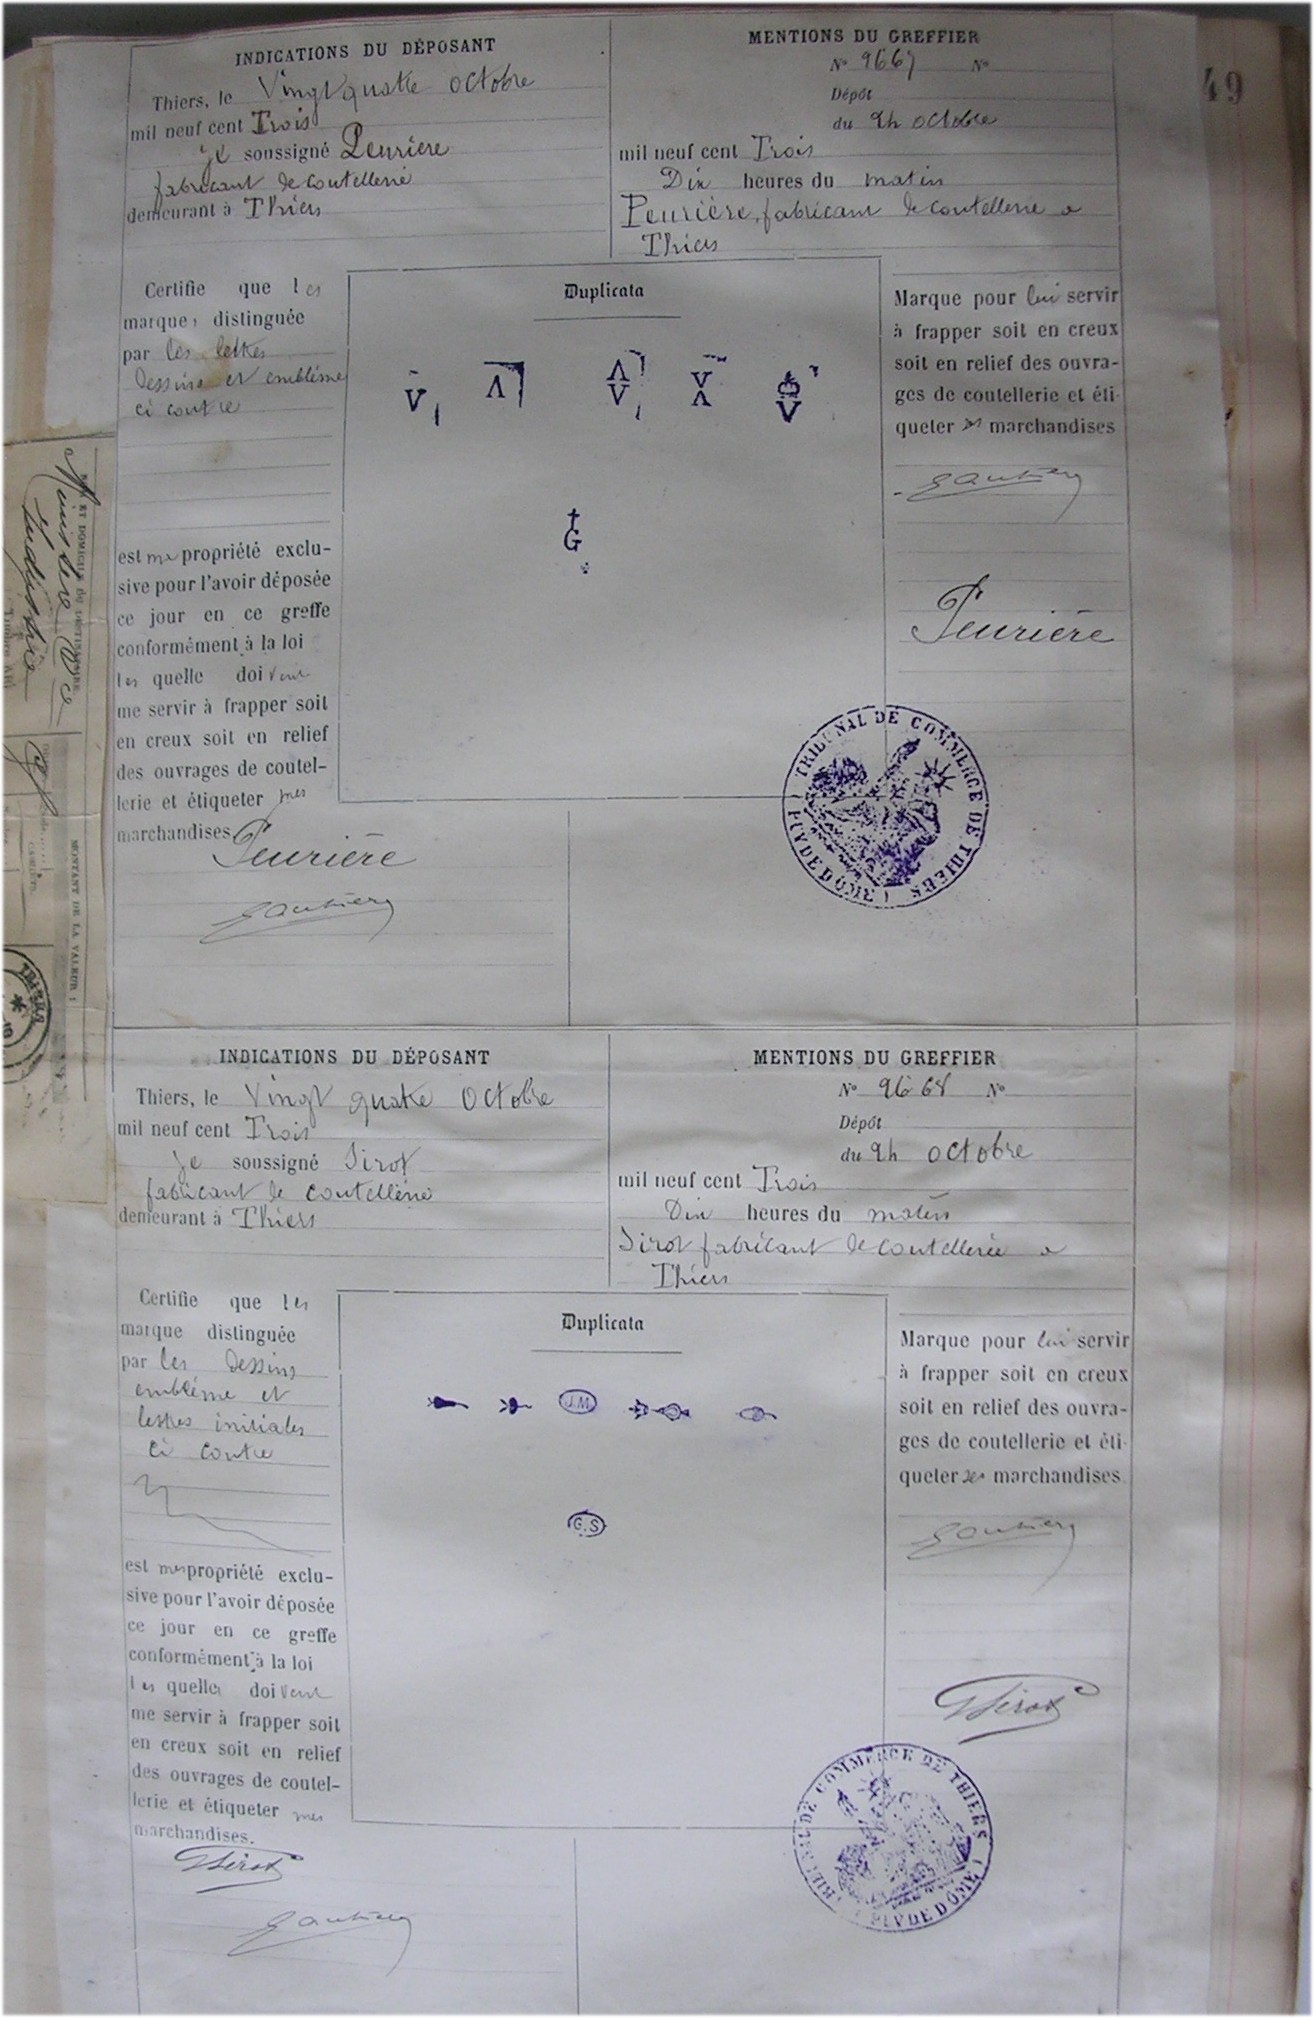 49
INDICATIONS DU DÉPOSANT
Thiers, le Vingt quatre octobre
mil neuf cent Trois
je soussigné Peurière
fabricant de coutellerie
demeurant à Thiers
MENTIONS DU GREFFIER
N° 9667 N°
Dépôt
du 24 octobre
mil neuf cent Trois
Dix heures du matin
Peurière, fabricant de coutellerie a
Thiers
Certifie que les
marques distinguée
par les lettres
dessins et emblème
ci contre
est ma propriété exclu-
sive pour l'avoir déposée
ce jour en ce greffe
conformément à la loi
les quelle doivent
me servir à frapper soit
en creux soit en relief
des ouvrages de coutel-
lerie et étiqueter mes
marchandises.
Peurière
Duplicata
V Λ Λ V V Λ V
G
Marque pour lui servir
à frapper soit en creux
soit en relief des ouvra-
ges de coutellerie et éti-
queter ses marchandises
Peurière
TRIBUNAL DE COMMERCE DE THIERS
( PUY DE DÔME )
MONTANT DE LA VALEUR :
INDICATIONS DU DÉPOSANT
Thiers, le Vingt quatre octobre
mil neuf cent Trois
je soussigné Sirot
fabricant de coutellerie
demeurant à Thiers
MENTIONS DU GREFFIER
N° 9668 N°
Dépôt
du 24 octobre
mil neuf cent Trois
Dix heures du matin
Sirot fabricant de coutellerie a
Thiers
Certifie que les
marque distinguée
par les dessins
emblème et
lettres initiales
ci contre
est mes propriété exclu-
sive pour l'avoir déposée
ce jour en ce greffe
conformément à la loi
les quelles doivent
me servir à frapper soit
en creux soit en relief
des ouvrages de coutel-
lerie et étiqueter mes
marchandises.
GSirot
Duplicata
J.M
G.S
Marque pour lui servir
à frapper soit en creux
soit en relief des ouvra-
ges de coutellerie et éti-
queter ses marchandises
GSirot
TRIBUNAL DE COMMERCE DE THIERS
( PUY DE DÔME )